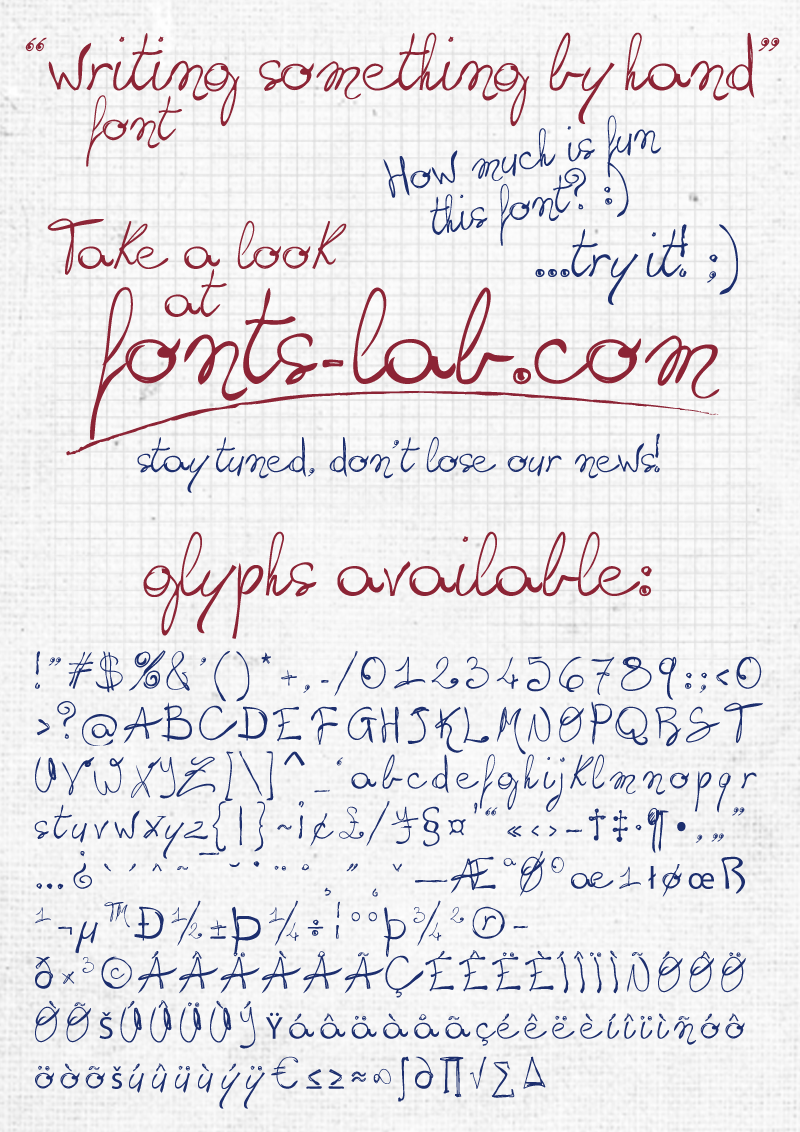 “writing something by hand”
font
How much is fun
this font? :)
...try it! ;)
Take a look
at
fonts-lab.com
stay tuned, don't lose our news!
glyphs available:
!"#$%&'()*+,-/0123456789:;<O
>?@ABCDEFGHIJKLMNOPQRST
UVWXYZ[\]^_`abcdefghijklmnopqr
stuvwxyz{|}~¡¢£/¥§¤'“«‹›–†‡·¶•‚„”
…¿`´^~¯˘˙¨˚¸˝˛ˇ—ƪغæ1łøœß
¹¬µ™Ð½±Þ¼÷¦°°þ¾²®-
ð×³©ÁÂÄÀÅÃÇÉÊËÈÍÎÏÌÑÓÔÖ
ÒÕšÚÛÜÙÝŸáâäàåãçéêëèíîïìñóô
öòõšúûüùýÿ€≤≥≈∞∫∂∏√∑∆